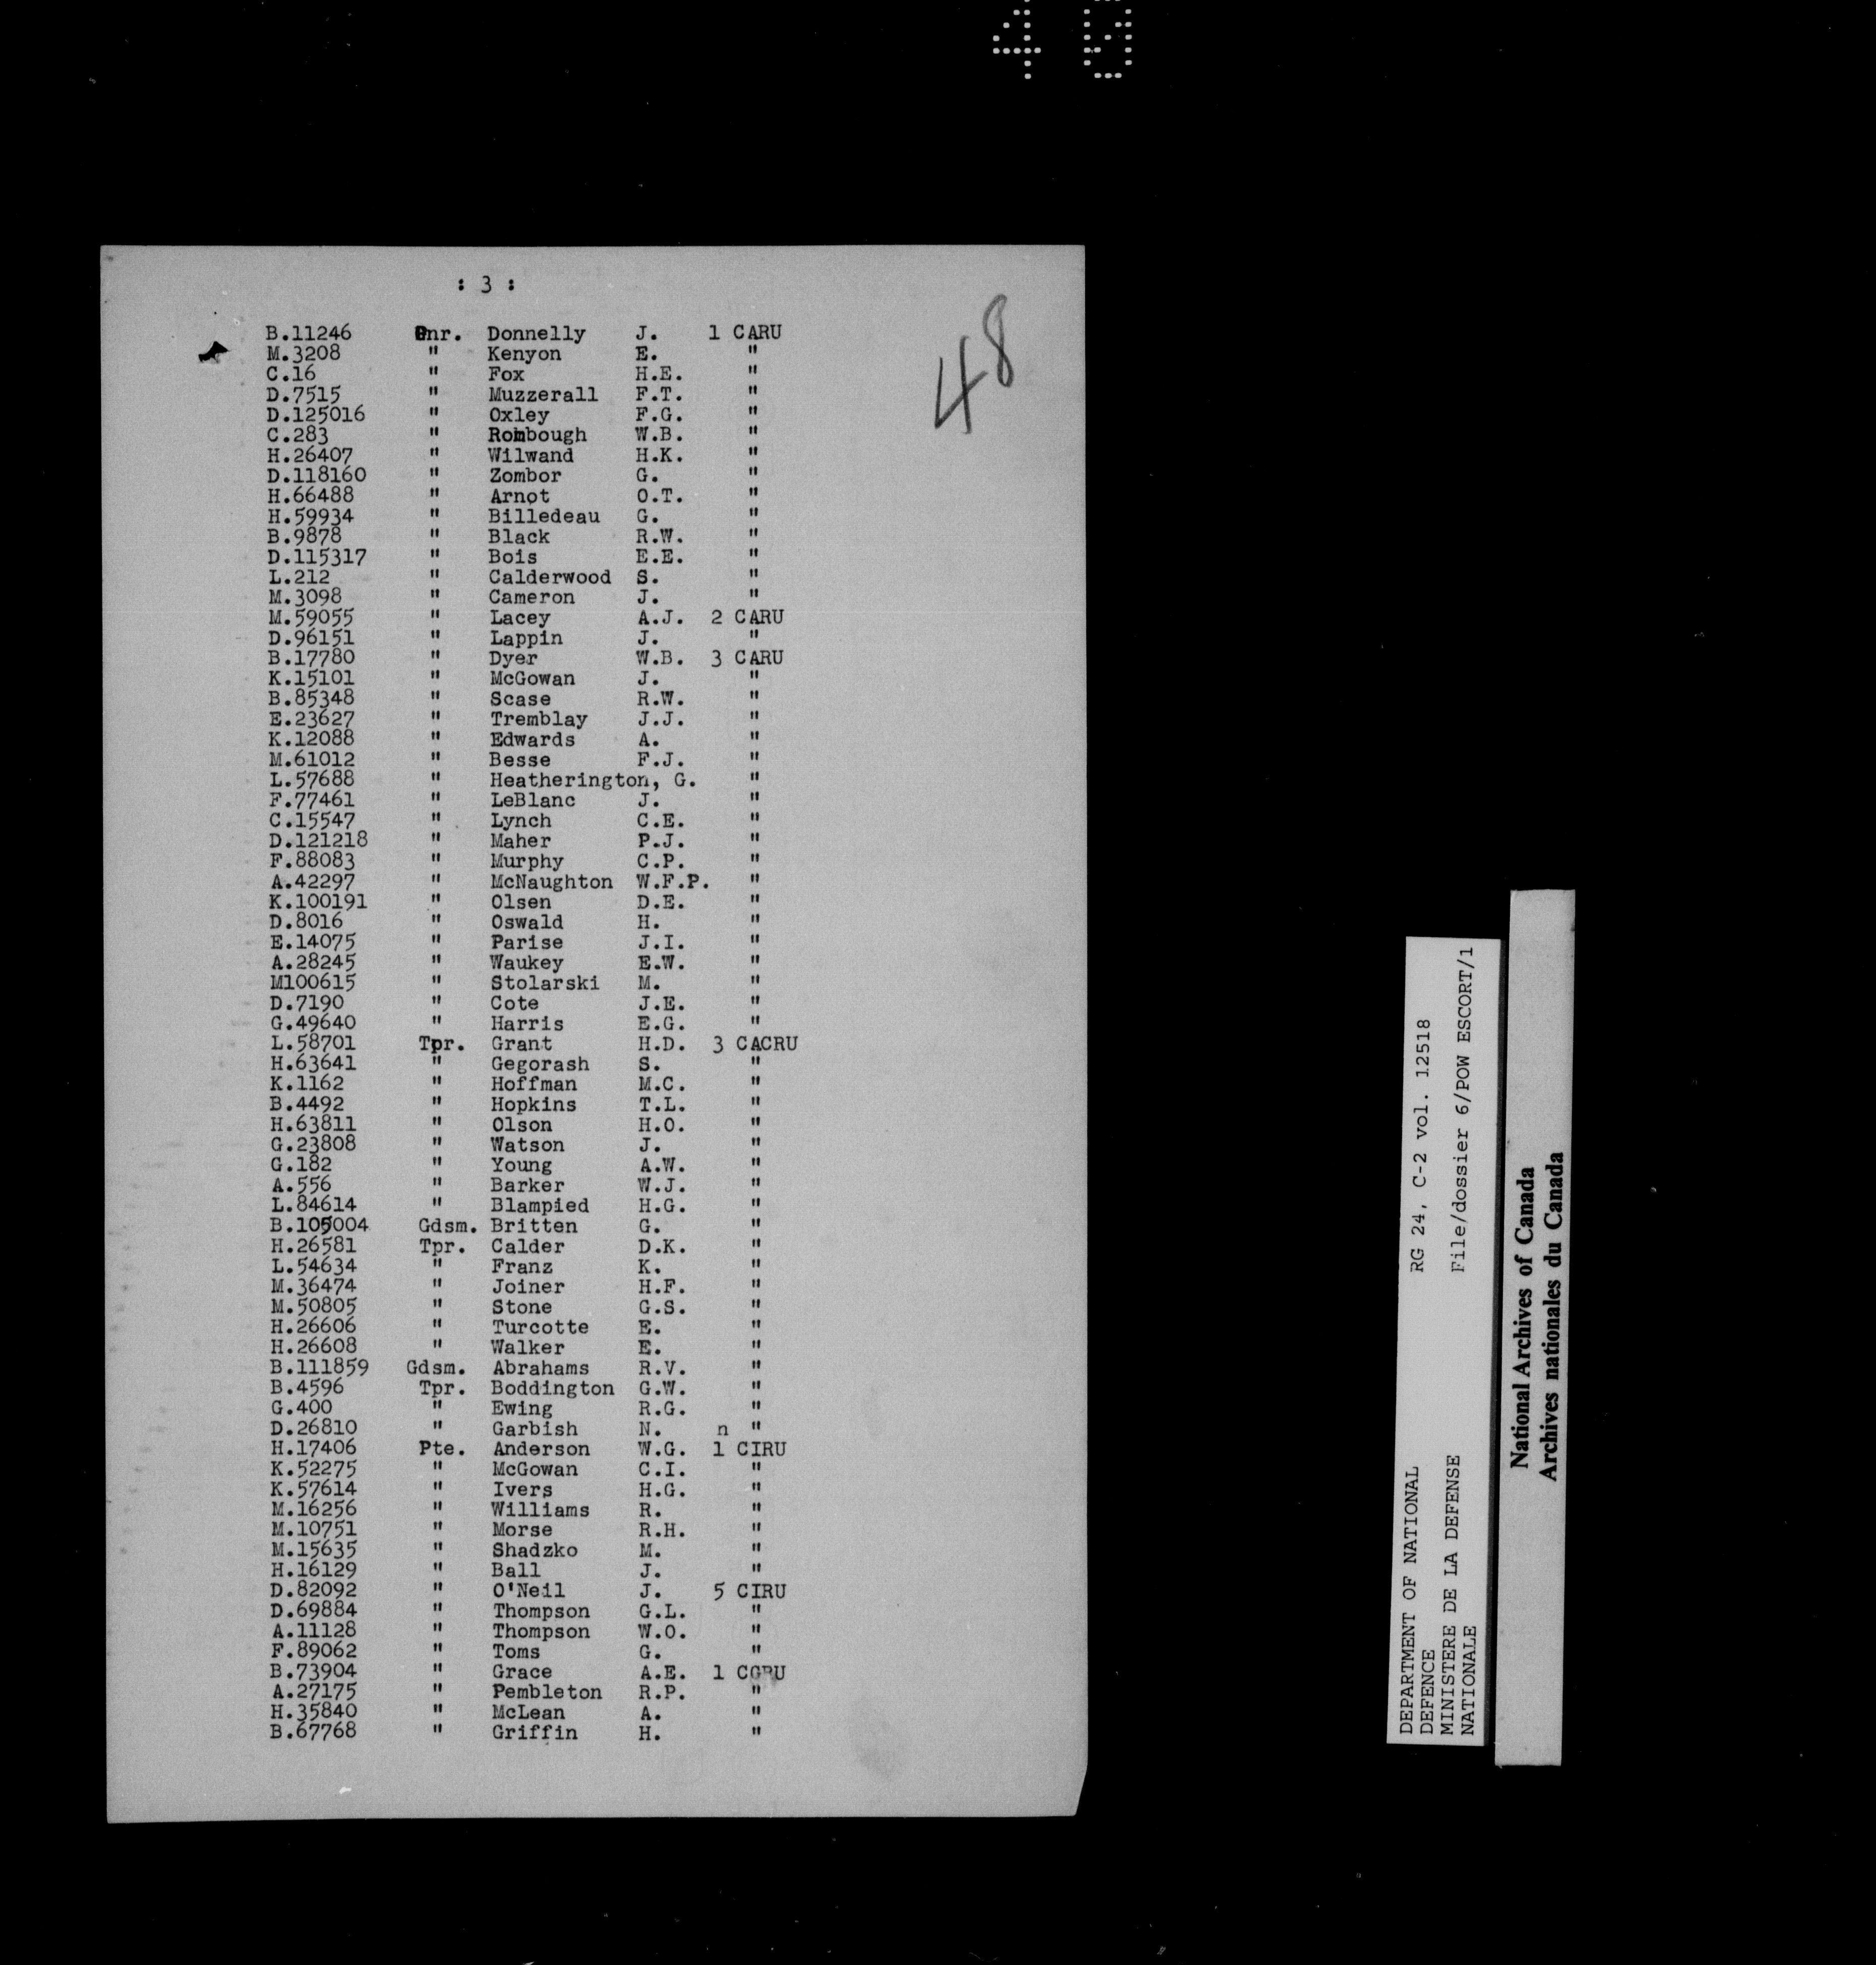 40
: 3 :
48
B.11246 Gnr. Donnelly J. 1 CARU
M.3208 " Kenyon E. "
C.16 " Fox H.E. "
D.7515 " Muzzerall F.T. "
D.125016 " Oxley F.G. "
C.283 " Rombough W.B. "
H.26407 " Wilwand H.K. "
D.118160 " Zombor G. "
H.66488 " Arnot O.T. "
H.59934 " Billedeau G. "
B.9878 " Black R.W. "
D.115317 " Bois E.E. "
L.212 " Calderwood S. "
M.3098 " Cameron J. "
M.59055 " Lacey A.J. 2 CARU
D.96151 " Lappin J. "
B.17780 " Dyer W.B. 3 CARU
K.15101 " McGowan J. "
B.85348 " Scase R.W. "
E.23627 " Tremblay J.J. "
K.12088 " Edwards A. "
M.61012 " Besse F.J. "
L.57688 " Heatherington, G. "
F.77461 " LeBlanc J. "
C.15547 " Lynch C.E. "
D.121218 " Maher P.J. "
F.88083 " Murphy C.P. "
A.42297 " McNaughton W.F.P. "
K.100191 " Olsen D.E. "
D.8016 " Oswald H. "
E.14075 " Parise J.I. "
A.28245 " Waukey E.W. "
M100615 " Stolarski M. "
D.7190 " Cote J.E. "
G.49640 " Harris E.G. "
L.58701 Tpr. Grant H.D. 3 CACRU
H.63641 " Gegorash S. "
K.1162 " Hoffman M.C. "
B.4492 " Hopkins T.L. "
H.63811 " Olson H.O. "
G.23808 " Watson J. "
G.182 " Young A.W. "
A.556 " Barker W.J. "
L.84614 " Blampied H.G. "
B.105004 Gdsm. Britten G. "
H.26581 Tpr. Calder D.K. "
L.54634 " Franz K. "
M.36474 " Joiner H.F. "
M.50805 " Stone G.S. "
H.26606 " Turcotte E. "
H.26608 " Walker E. "
B.111859 Gdsm. Abrahams R.V. "
B.4596 Tpr. Boddington G.W. "
G.400 " Ewing R.G. "
D.26810 " Garbish N. n "
H.17406 Pte. Anderson W.G. 1 CIRU
K.52275 " McGowan C.I. "
K.57614 " Ivers H.G. "
M.16256 " Williams R. "
M.10751 " Morse R.H. "
M.15635 " Shadzko M. "
H.16129 " Ball J. "
D.82092 " O'Neil J. 5 CIRU
D.69884 " Thompson G.L. "
A.11128 " Thompson W.O. "
F.89062 " Toms G. "
B.73904 " Grace A.E. 1 CGRU
A.27175 " Pembleton R.P. "
H.35840 " McLean A. "
B.67768 " Griffin H. "
DEPARTMENT OF NATIONAL RG 24, C-2 vol. 12518
DEFENCE
MINISTERE DE LA DEFENSE File/dossier 6/POW ESCORT/1
NATIONALE
National Archives of Canada
Archives nationales du Canada